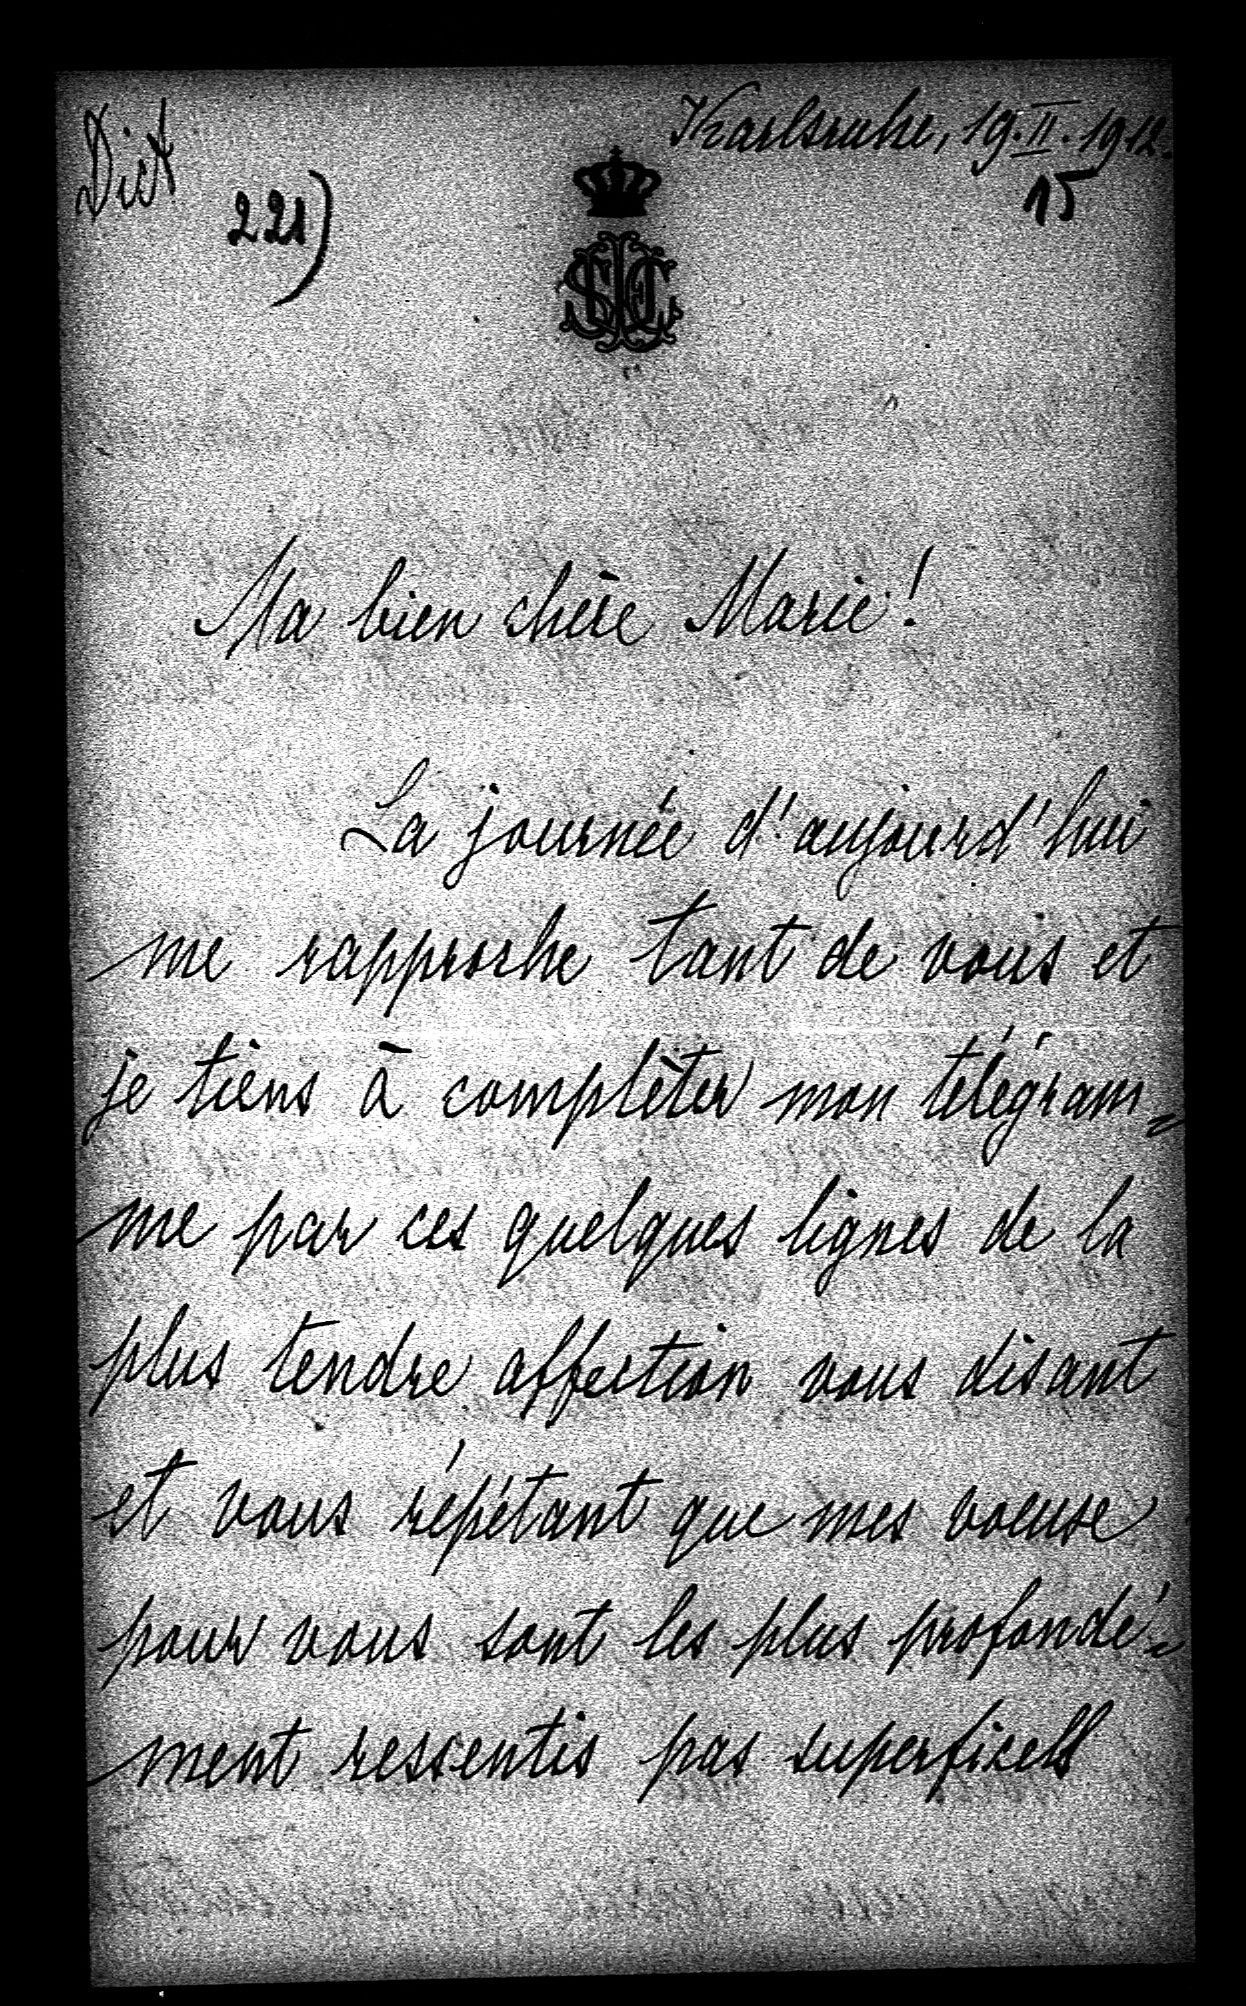 Dict
Karlsruhe, 19.II.1912.
221)
15
Ma bien chère Marie!
La journée d'aujourd'hui
me rapproche tant de vous et
je tiens à complèter mon télégram=
me par ces quelques lignes de la
plus tendre affection vous disant
et vous répétant que mes voeuse
pour vous sont les plus profondé=
ment ressentis pas superficells